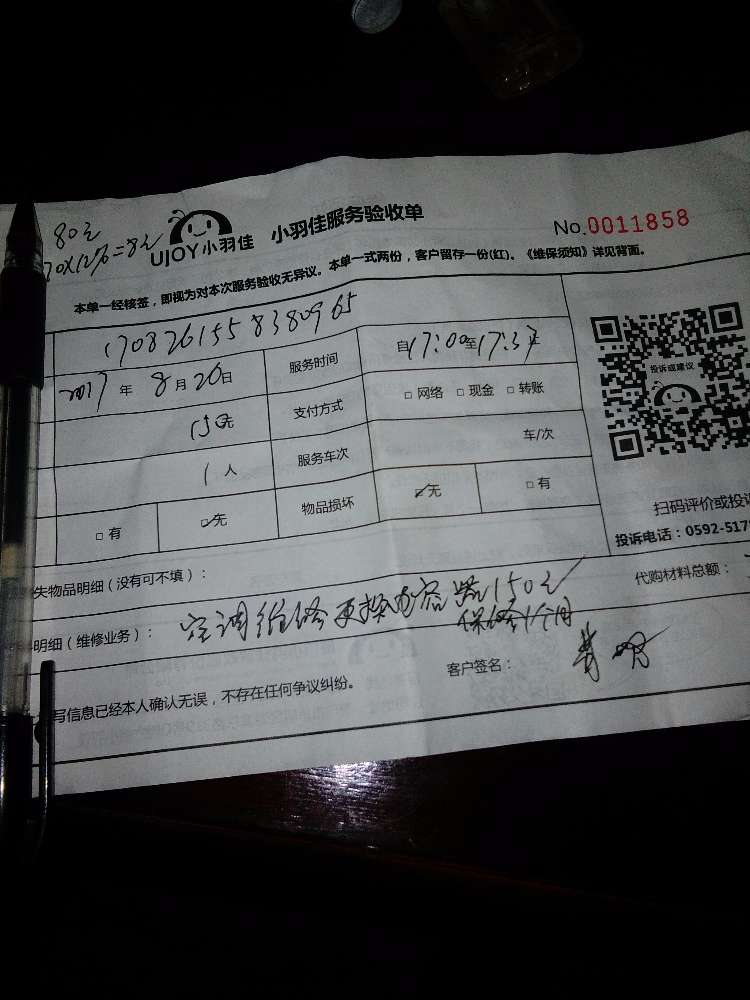 80元
70X12%=8元
UJOY小羽佳 小羽佳服务验收单
No.0011858
本单一经核签，即视为对本次服务验收无异议。本单一式两份，客户留存一份(红)。《维保须知》详见背面。
1708261558380965
2017年8月26日 服务时间 自17:00至17:37
支付方式 □网络 □现金 □转账
投诉或建议
1人 服务车次 车/次
□有 无 物品损坏 无 □有
扫码评价或投诉
投诉电话：0592-517
失物品明细（没有可不填）：
代购材料总额：
明细（维修业务）： 空调维修更换电容器150元
保修1个月
写信息已经本人确认无误，不存在任何争议纠纷。
客户签名：